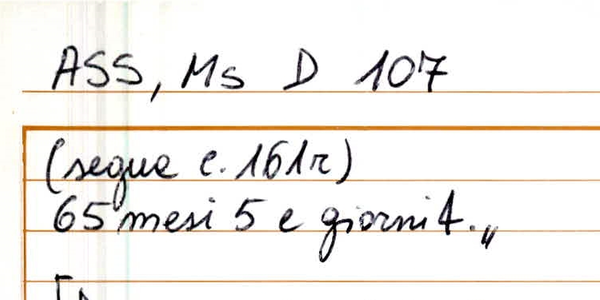 ASS, Ms D 107
(segue c. 161r)
65 mesi 5 e giorni 4.„